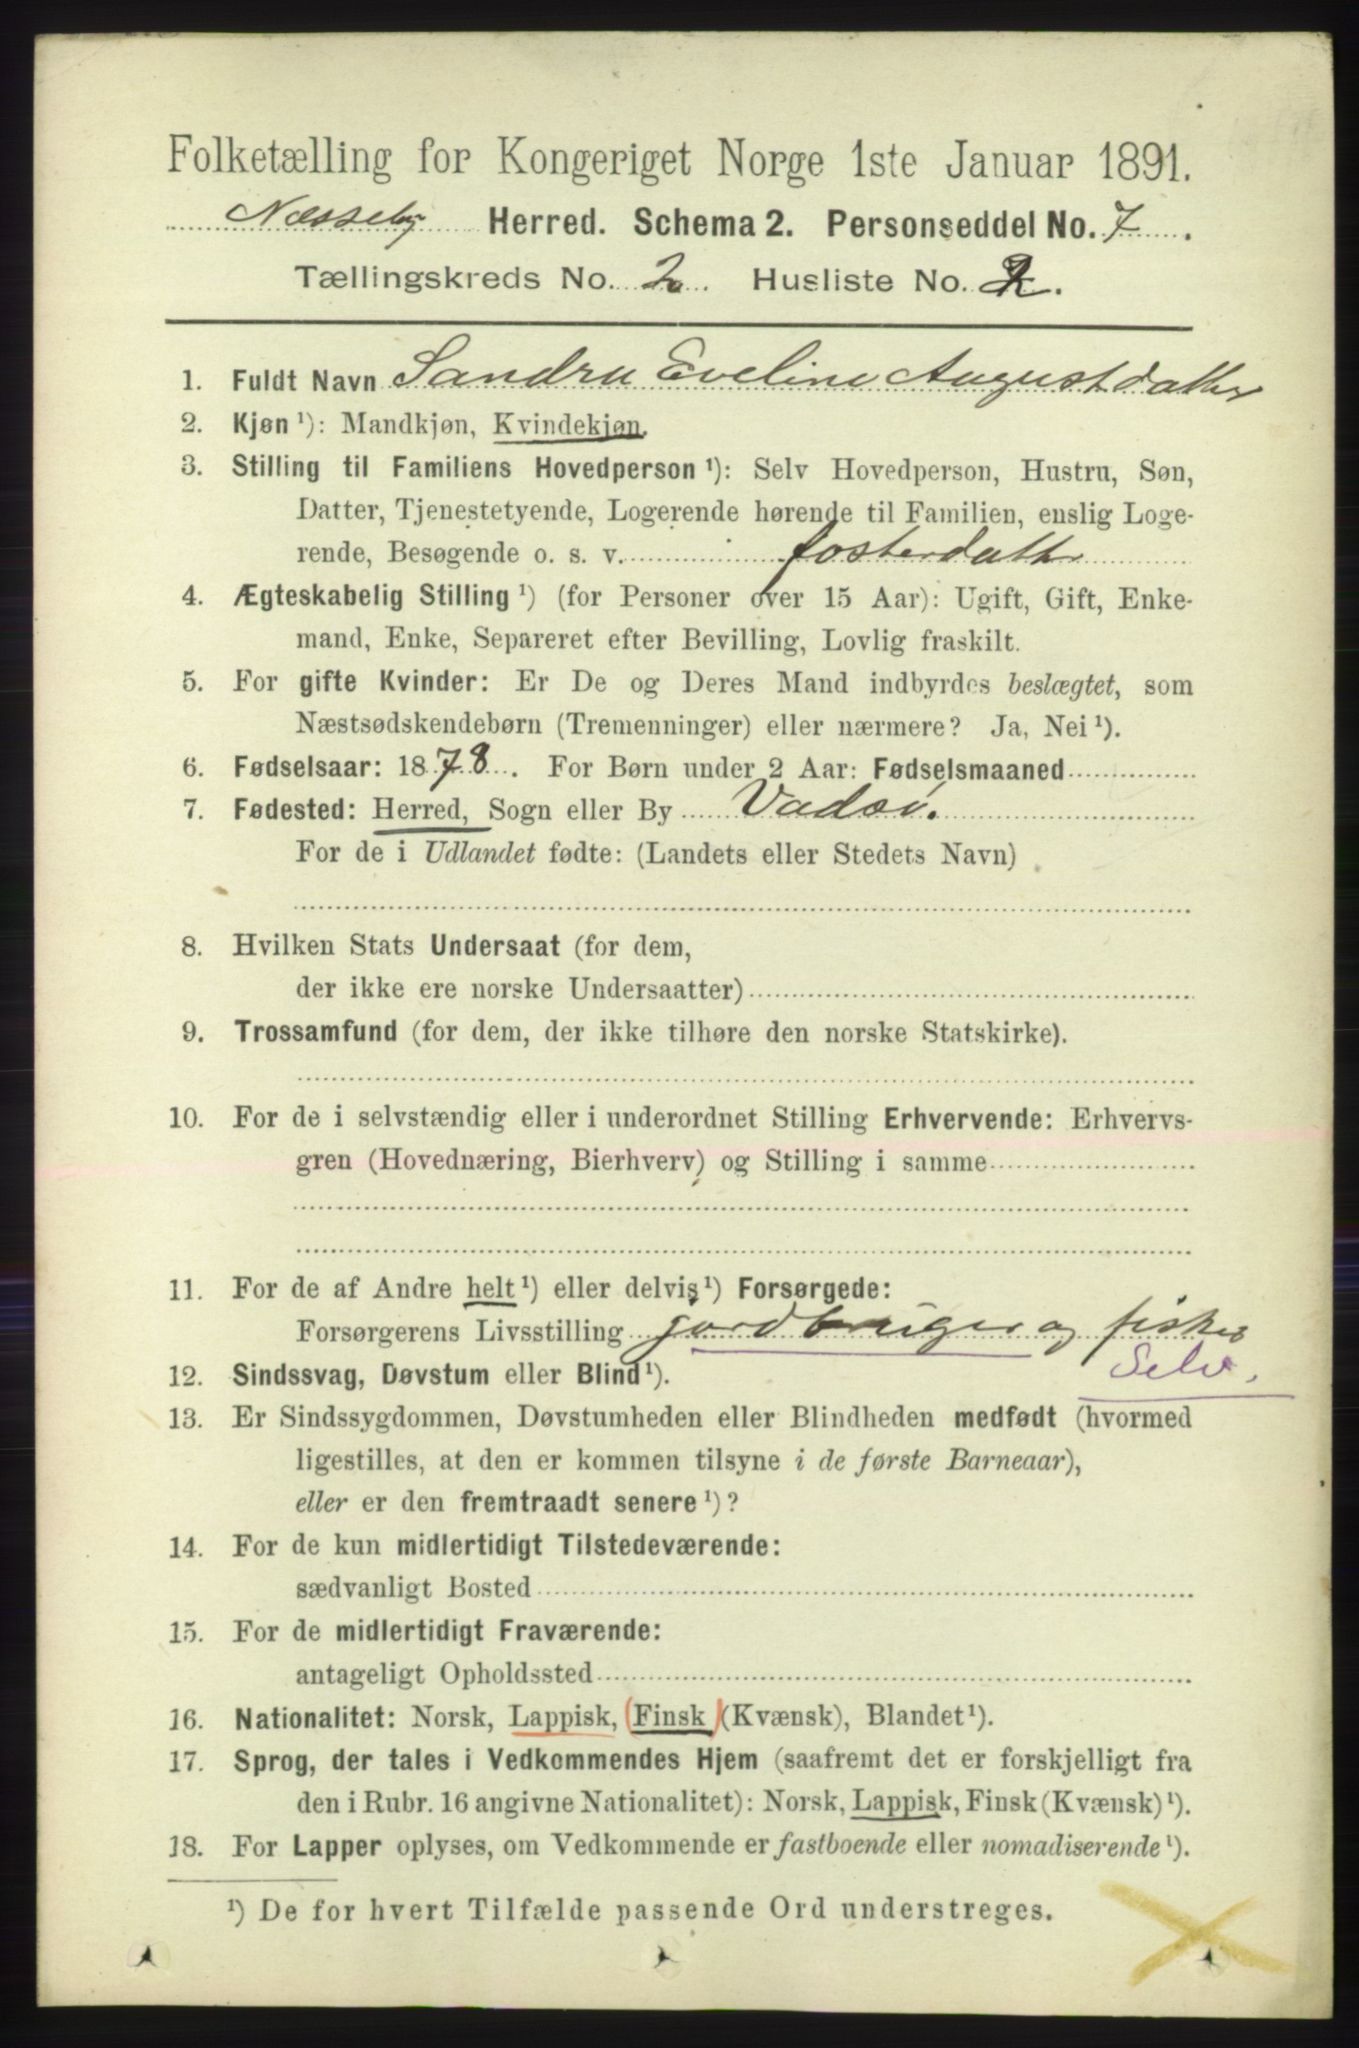 Folketælling for Kongeriget Norge 1ste Januar 1891.
Næsseby Herred. Schema 2. Personseddel No. 7.
Tællingskreds No. 2. Husliste No. 2.
1. Fuldt Navn Sandra Eveline Augustdatter
2. Kjøn ¹): Mandkjøn, Kvindekjøn.
3. Stilling til Familiens Hovedperson ¹): Selv Hovedperson, Hustru, Søn,
Datter, Tjenestetyende, Logerende hørende til Familien, enslig Loge-
rende, Besøgende o. s. v. fosterdatter
4. Ægteskabelig Stilling ¹) (for Personer over 15 Aar): Ugift, Gift, Enke-
mand, Enke, Separeret efter Bevilling, Lovlig fraskilt.
5. For gifte Kvinder: Er De og Deres Mand indbyrdes beslægtet, som
Næstsødskendebørn (Tremenninger) eller nærmere? Ja, Nei ¹).
6. Fødselsaar: 1878. For Børn under 2 Aar: Fødselsmaaned
7. Fødested: Herred, Sogn eller By Vadsø.
For de i Udlandet fødte: (Landets eller Stedets Navn)
8. Hvilken Stats Undersaat (for dem,
der ikke ere norske Undersaatter)
9. Trossamfund (for dem, der ikke tilhøre den norske Statskirke).
10. For de i selvstændig eller i underordnet Stilling Erhvervende: Erhvervs-
gren (Hovednæring, Bierhverv) og Stilling i samme
11. For de af Andre helt ¹) eller delvis ¹) Forsørgede:
Forsørgerens Livsstilling jordbruger og fisker
Selv.
12. Sindssvag, Døvstum eller Blind ¹).
13. Er Sindssygdommen, Døvstumheden eller Blindheden medfødt (hvormed
ligestilles, at den er kommen tilsyne i de første Barneaar),
eller er den fremtraadt senere ¹)?
14. For de kun midlertidigt Tilstedeværende:
sædvanligt Bosted
15. For de midlertidigt Fraværende:
antageligt Opholdssted
16. Nationalitet: Norsk, Lappisk, (Finsk) (Kvænsk), Blandet ¹).
17. Sprog, der tales i Vedkommendes Hjem (saafremt det er forskjelligt fra
den i Rubr. 16 angivne Nationalitet): Norsk, Lappisk, Finsk (Kvænsk) ¹).
18. For Lapper oplyses, om Vedkommende er fastboende eller nomadiserende ¹).
¹) De for hvert Tilfælde passende Ord understreges.